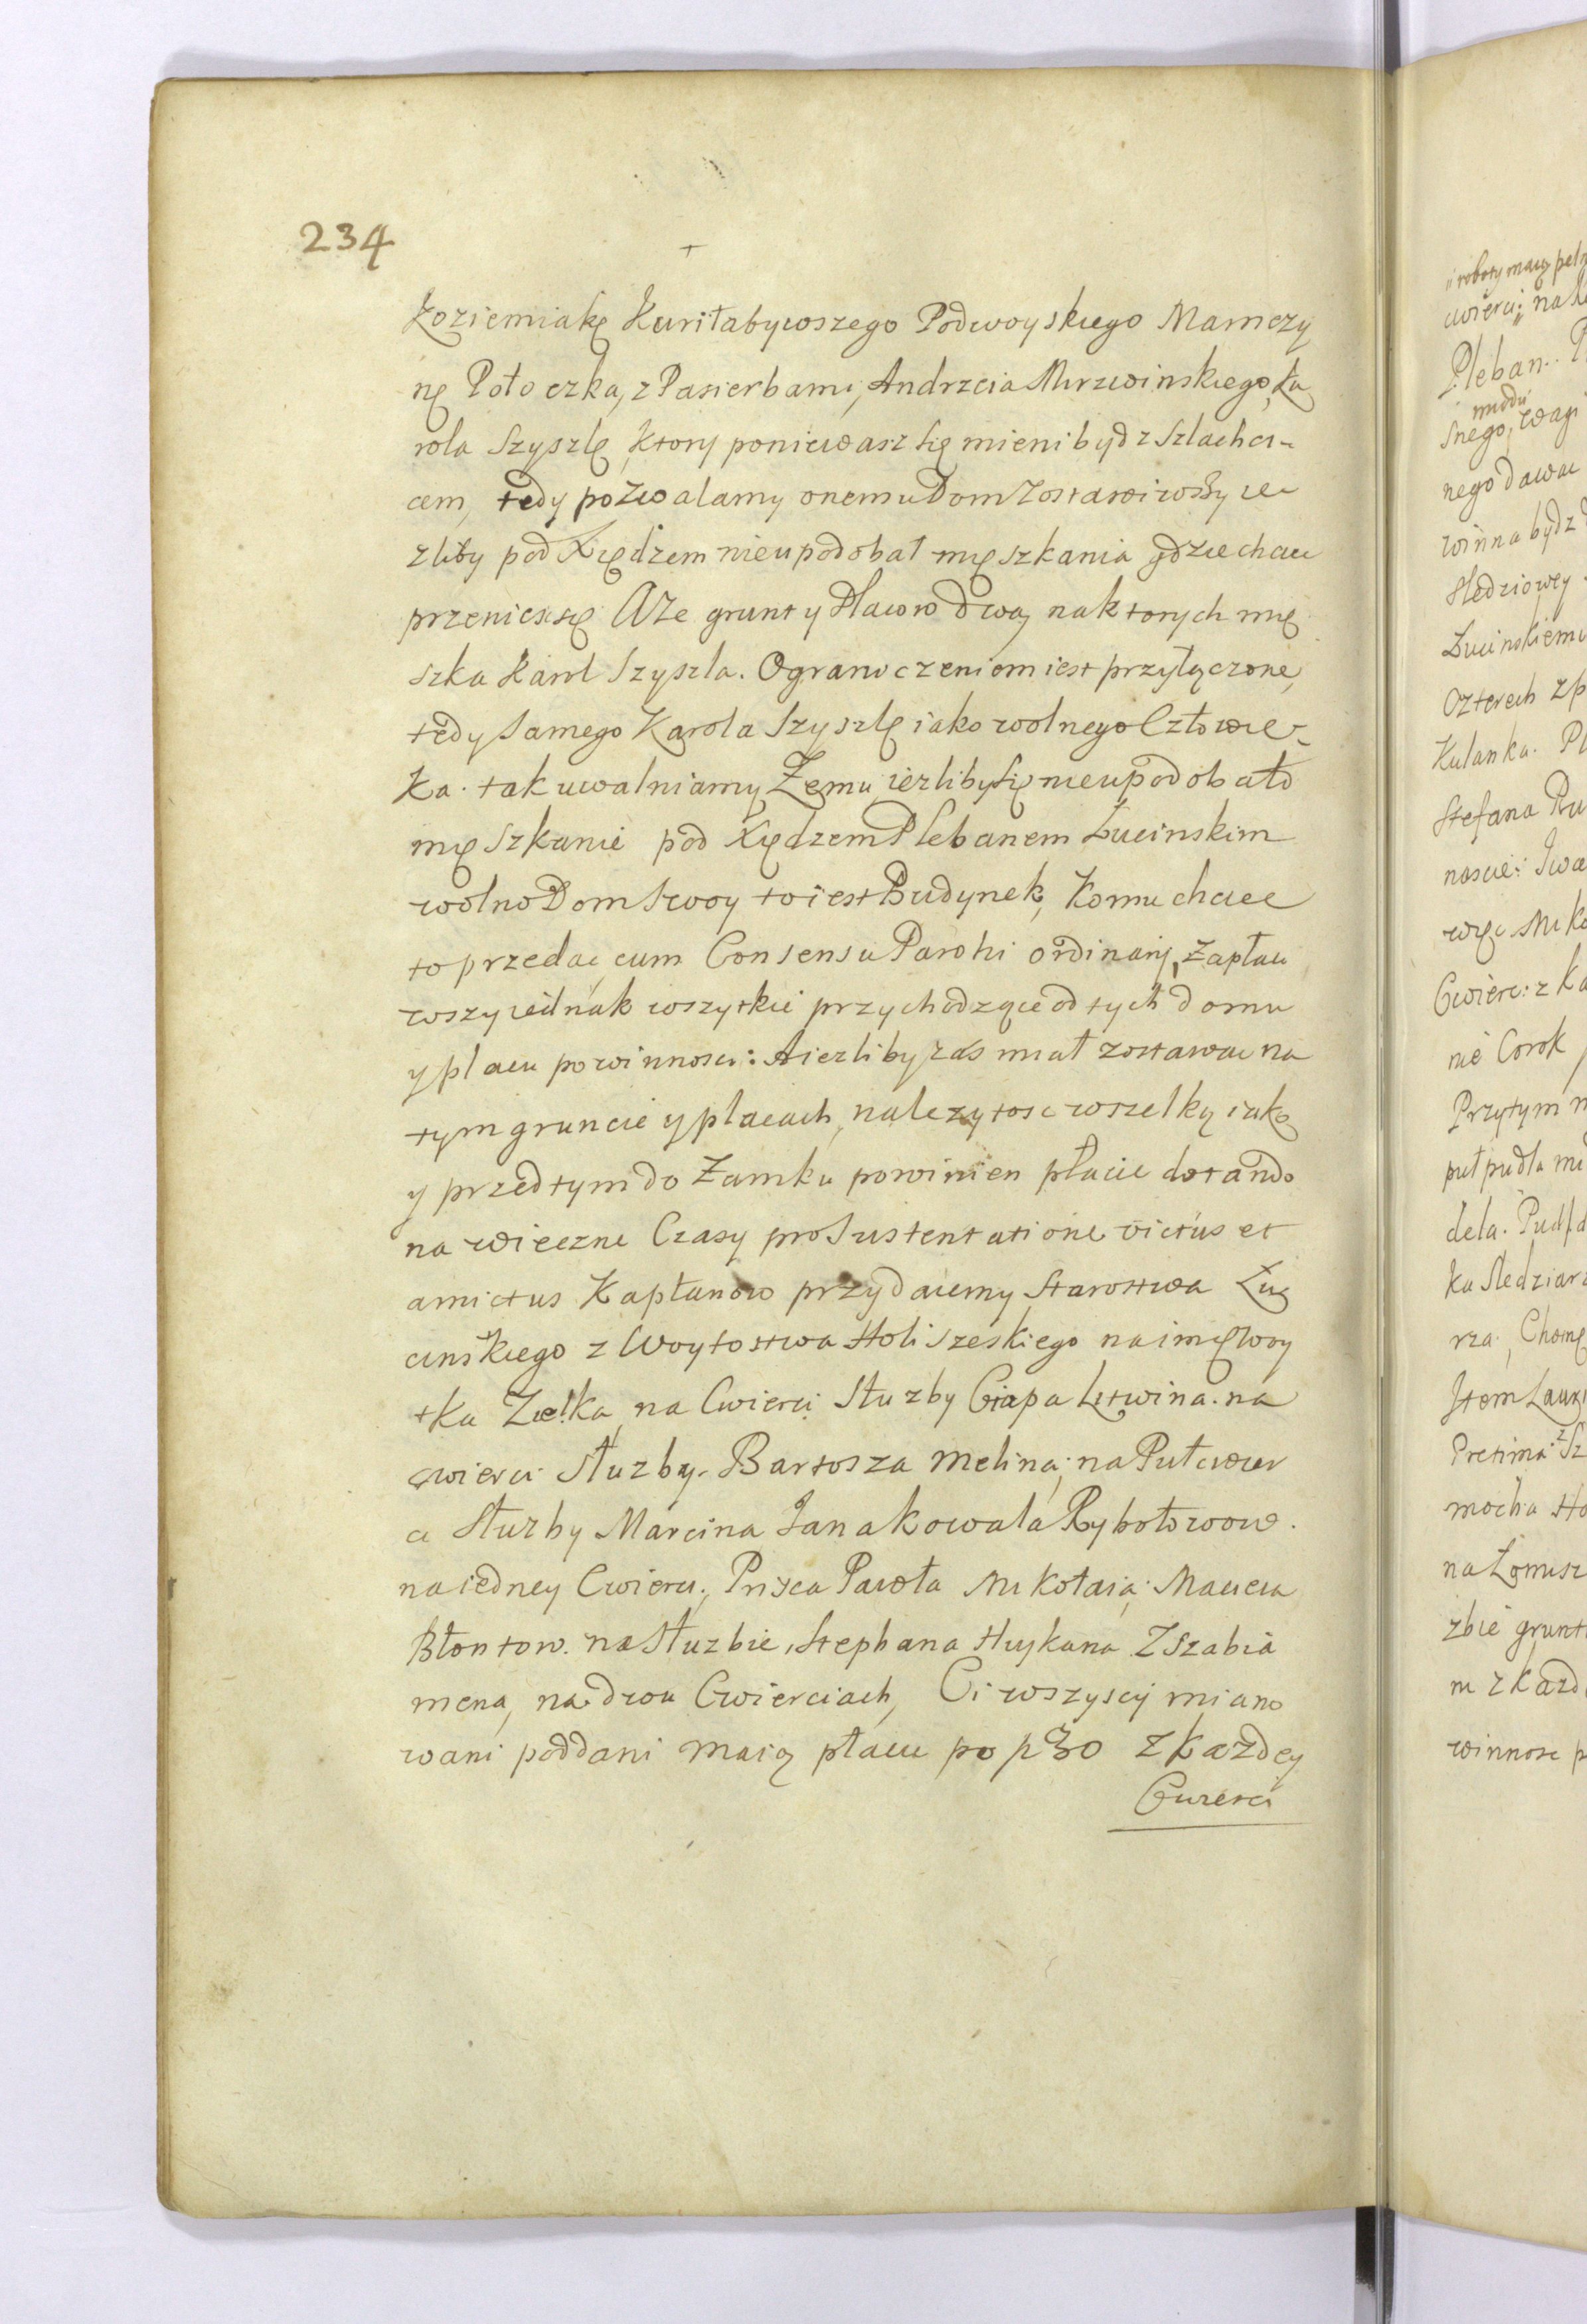 234
Koziemiakę Kuriła bywszego Podwoyskiego Mamczy
nę Potoczka, z Pasierbami, Andrzeia Mirzwinskiego, Ka
rola Szyszlę, ktory poniewasz się mieni bydz Szlachci-
cem, tedy pozwalamy onemu Dom zostawiwszy ie
zliby pod Xiędzem nieupodobał mięszkania gdzie chcieć
przeniesć się A że grunt y Placow dwa, na ktorych mię
szka Karol Szyszla. Ograniczeniem iest przyłączone,
tedy samego Karola Szyszlę iako wolnego Człowie-
ka. tak uwalniamy Ze mu iezliby się nieupodobało
mięszkanie pod Xiędzem Plebanem Lucinskim
wolno Dom swoy to iest Budynek, komu chciec
to przedac cum Consensu Parohi ordinarij, zapłaci
wszy iednak wszytkie przychodzące od tych domu
y placu powinnosci: A iezliby zas miał zostawac na
tym gruncie y placach, nalezytosc wszelką iako
y przedtym do Zamku powinien płacic dotando
na wieczne Czasy pro Sustentatione victus et
amictus Kapłanow przydaiemy Starostwa Lu
cinskiego z Woytostwa Holiszeskiego na imię Woy
tka Zielka, na Cwierci Słuzby Ciapa Litwina. na
cwierci Słuzby. Bartosza Melina; na Puł cwier
ci Słuzby Marcina Jana kowala Rybołowow.
na iedney Cwierci., Pawła Mikołaia: Macieia
Błontow. na Słuzbie, Stephana Huykana Z Szabia
mena, na dwu Cwierciach, Ci wszyscy miano
wani poddani maią płacic po 30 z każdey
Cwierci
i roboty maią peln
cwierci; nal
Pleban.. P
miodu
snego, wagi
nego dawac
winna bydz
sledziowey
Lucinskiemu
Czterech z p
Kulanka. Pl
Stefana Pu
nascie: Iwa
więc Miko
Cwierc: z Ka
nie Corok
Przytym m
puł pudla mi
dela. Pud
ka sledziar
rza, Chomę
Item Lauri
Pretima: z Sz
mocha Ho
na Łomisz
zbie grunt
ni z kazd
winnosc p